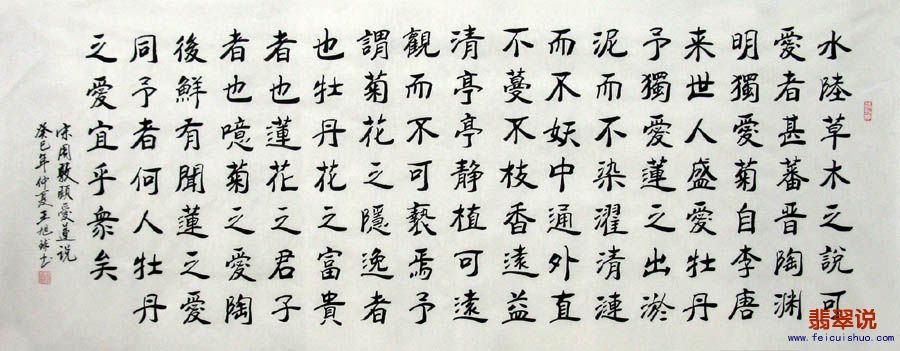 水陸草木之說可
愛者甚蕃晉陶渊
明獨愛菊自李唐
来世人盛愛牡丹
予獨愛蓮之出淤
泥而不染濯清漣
而不妖中通外直
不蔓不枝香遠益
清亭亭静植可遠
觀而不可褻焉予
謂菊花之隱逸者
也牡丹花之富貴
者也蓮花之君子
者也噫菊之愛陶
後鮮有聞蓮之愛
同予者何人牡丹
之愛宜乎衆矣
宋周敦頤愛蓮说
癸巳年仲夏王旭书
翡翠说
www.feicuishuo.com